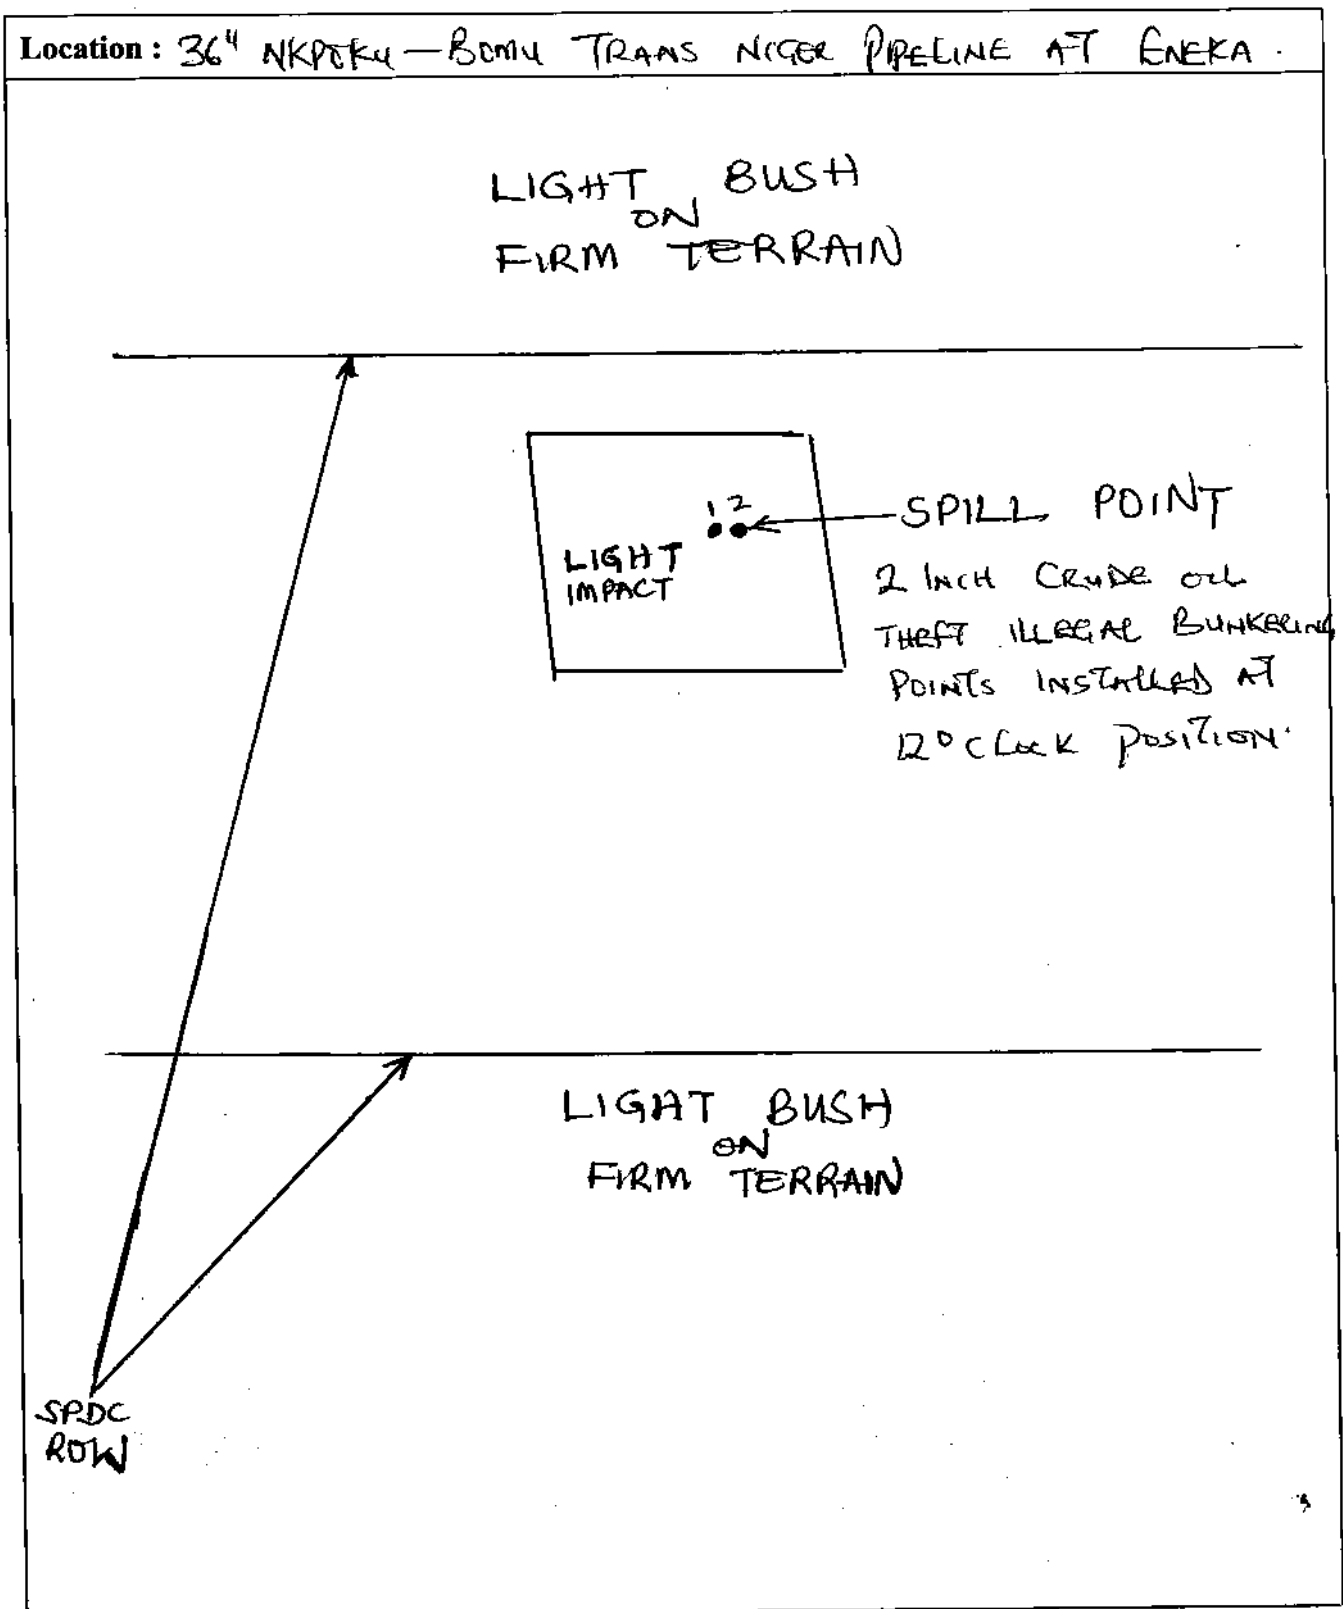 Location : 36" NKPOKU - BOMU TRANS NIGER PIPELINE AT ENEKA.
LIGHT BUSH
ON
FIRM TERRAIN
1 2
SPILL POINT
LIGHT
IMPACT
2 INCH CRUDE OIL
THEFT ILLEGAL BUNKERING
POINTS INSTALLED AT
12 O CLOCK POSITION.
LIGHT BUSH
ON
FIRM TERRAIN
SPDC
ROW